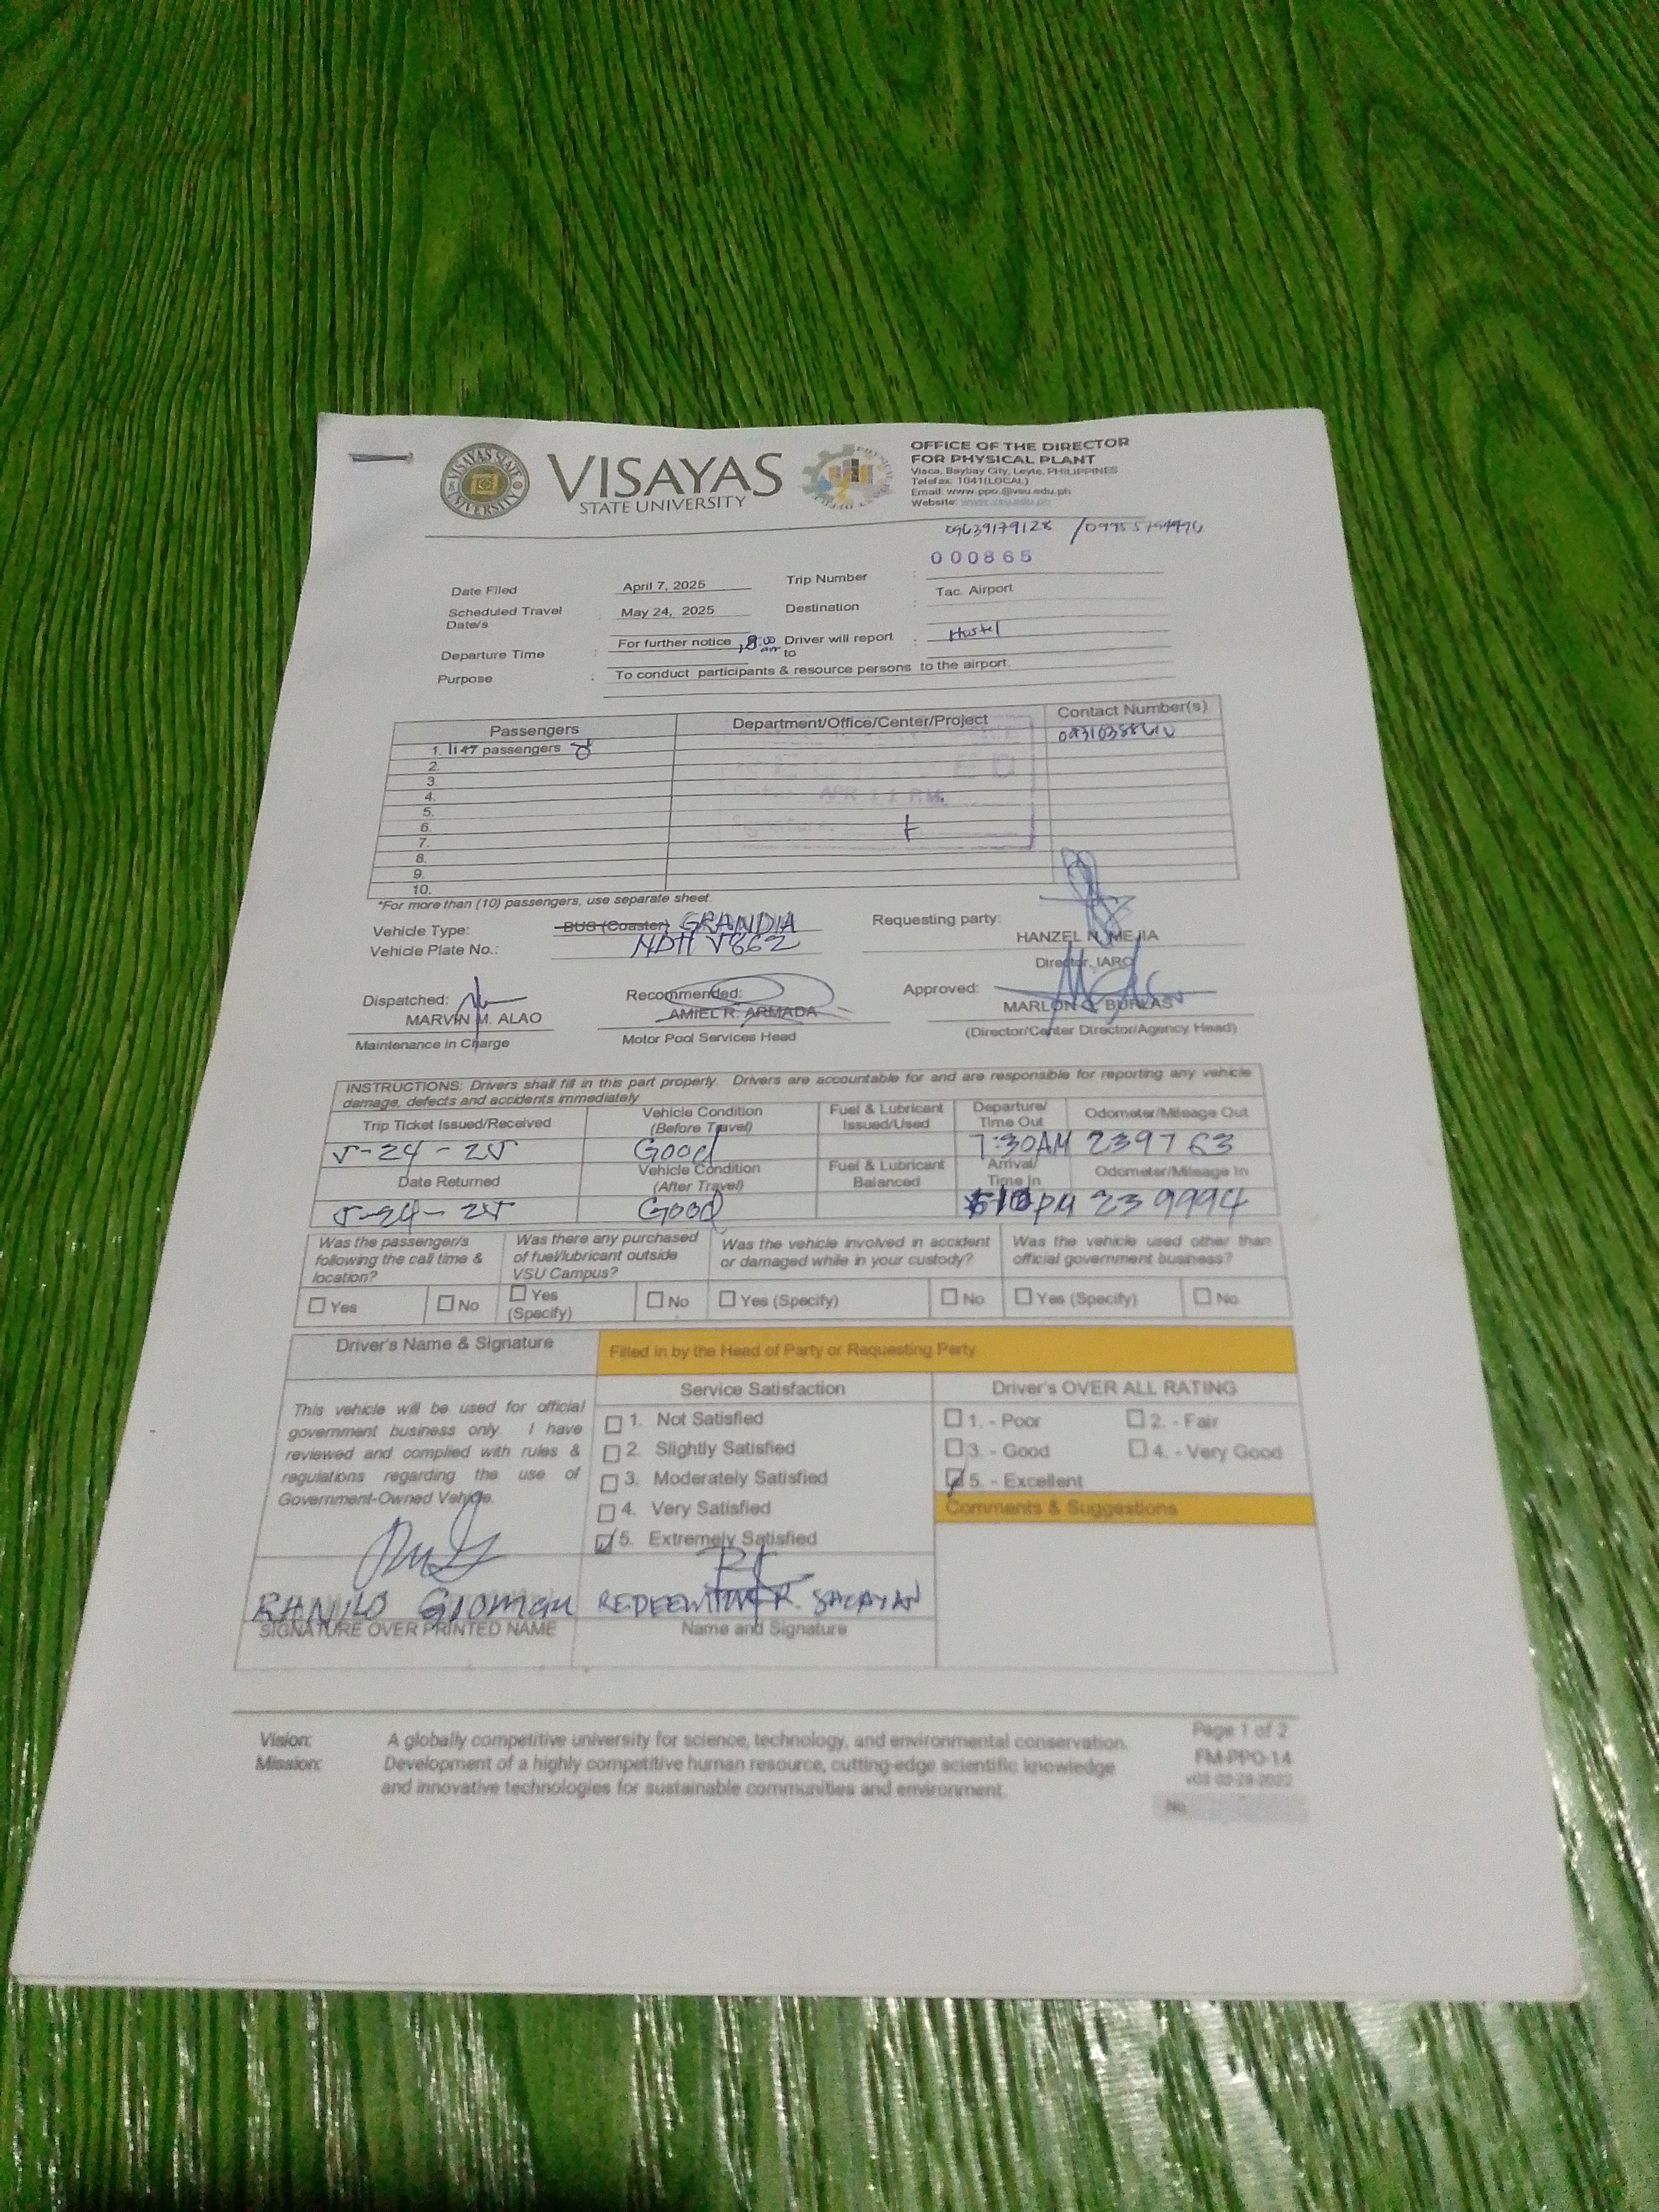 VISAYAS
STATE UNIVERSITY
OFFICE OF THE DIRECTOR
FOR PHYSICAL PLANT
Visca, Baybay City, Leyte, PHILIPPINES
Telefax: 1041(LOCAL)
Email: www.ppo.@vsu.edu.ph
Website: www.vsu.edu.ph
09639179128 /
000865
Date Filed April 7, 2025 Trip Number :
Scheduled Travel Date/s : May 24, 2025 Destination : Tac. Airport
Departure Time : For further notice, 8:00 am Driver will report to : Hostel
Purpose : To conduct participants & resource persons to the airport.
Passengers Department/Office/Center/Project Contact Number(s)
1. passengers
2.
3.
4.
5.
6.
7.
8.
9.
10.
RECEIVED
*For more than (10) passengers, use separate sheet.
Vehicle Type: BUS (Coaster) GRANDIA
Vehicle Plate No.: NDH V862
Requesting party:
HANZEL N. MEJIA
Director, IARO
Dispatched: Recommended: Approved:
MARVIN M. ALAO AMIEL R. ARMADA MARLON G. BURLAS
Maintenance in Charge Motor Pool Services Head (Director/Center Director/Agency Head)
INSTRUCTIONS: Drivers shall fill in this part properly. Drivers are accountable for and are responsible for reporting any vehicle
damage, defects and accidents immediately
Trip Ticket Issued/Received Vehicle Condition (Before Travel) Fuel & Lubricant Issued/Used Departure/ Time Out Odometer/Mileage Out
5-24-25 Good 7:30AM 239763
Date Returned Vehicle Condition (After Travel) Fuel & Lubricant Balanced Arrival/ Time In Odometer/Mileage In
5-24-25 Good PM 239994
Was the passenger/s following the call time & location? Was there any purchased of fuel/lubricant outside VSU Campus? Was the vehicle involved in accident or damaged while in your custody? Was the vehicle used other than official government business?
Yes No Yes (Specify) No Yes (Specify) No Yes (Specify) No
Driver's Name & Signature Filled in by the Head of Party or Requesting Party
Service Satisfaction Driver's OVER ALL RATING
This vehicle will be used for official
government business only. I have
reviewed and complied with rules &
regulations regarding the use of
Government-Owned Vehicle.
1. Not Satisfied
2. Slightly Satisfied
3. Moderately Satisfied
4. Very Satisfied
5. Extremely Satisfied
1. - Poor 2. - Fair
3. - Good 4. - Very Good
5. - Excellent
Comments & Suggestions
SIGNATURE OVER PRINTED NAME Name and Signature
Vision: A globally competitive university for science, technology, and environmental conservation.
Mission: Development of a highly competitive human resource, cutting-edge scientific knowledge
and innovative technologies for sustainable communities and environment.
Page 1 of 2
FM-PPO-14
No.